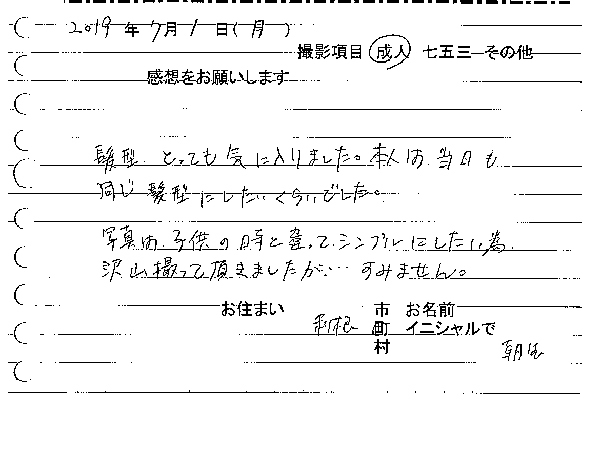 2019年 7月 1日(月)
撮影項目 成人 七五三 その他
感想をお願いします
髪型、とっても気に入りました。本人は、当日も
同じ髪型にしたいくらいでした。
写真は、子供の時と違って、シンプルにしたい為、
沢山撮って頂きましたが…すみません。
お住まい 利根 市町村 お名前 イニシャルで